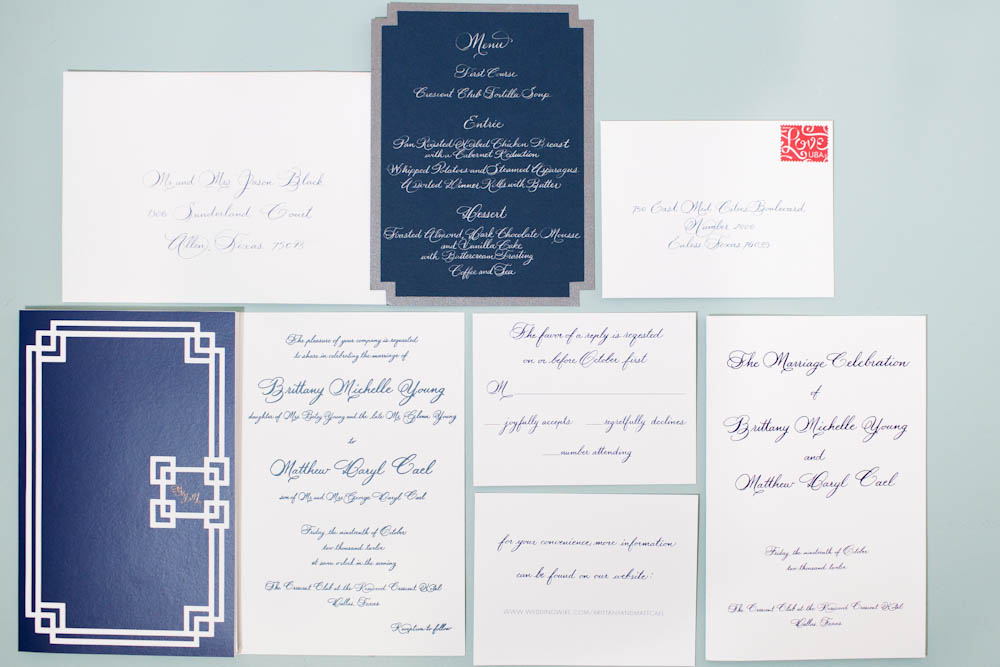 Menu
First Course
Crescent Club Tortilla Soup
Entrée
Pan Roasted Herbed Chicken Breast
with a Cabernet Reduction
Whipped Potatoes and Steamed Asparagus
Assorted Dinner Rolls with Butter
Dessert
Toasted Almond, Dark Chocolate Mousse
and Vanilla Cake
with Buttercream Frosting
Coffee and Tea
Mr and Mrs Jason Black
Sunderland Court
Allen, Texas 75013
Love
USA
750 East Mid Cities Boulevard
Number 2000
Euless Texas 76039
The pleasure of your company is requested
to share in celebrating the marriage of
Brittany Michelle Young
daughter of Mrs Betsy Young and the late Mr Glenn Young
to
Matthew Daryl Cael
son of Mr and Mrs George Daryl Cael
Friday, the nineteenth of October
two thousand twelve
at seven o'clock in the evening
The Crescent Club at the Rosewood Crescent Hotel
Dallas, Texas
Reception to follow
The favor of a reply is requested
on or before October first
M
joyfully accepts regretfully declines
number attending
for your convenience, more information
can be found on our website:
WWW.WEDDINGWIRE.COM/BRITTANYANDMATTCAEL
The Marriage Celebration
of
Brittany Michelle Young
and
Matthew Daryl Cael
Friday, the nineteenth of October
two thousand twelve
The Crescent Club at the Rosewood Crescent Hotel
Dallas, Texas